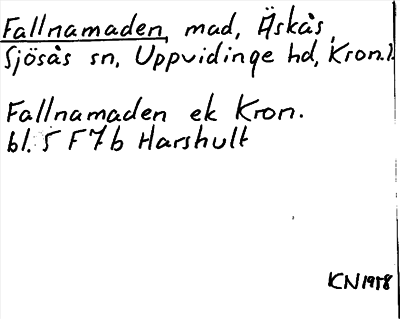 Fallnamaden, mad, Äskås,
Sjösås sn, Uppvidinge hd, Kron.l.
Fallnamaden ek Kron.
bl. 5 F7b Harshult
KN 1958